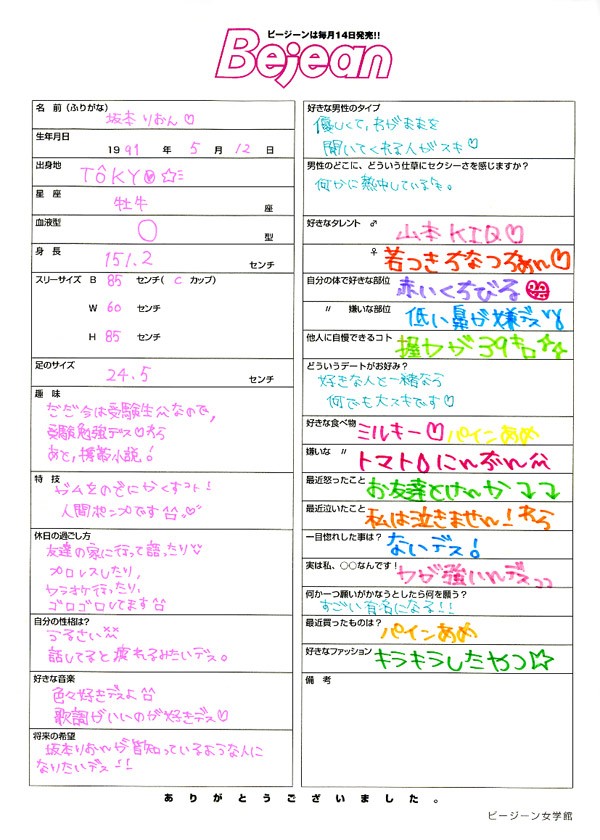 ビージーンは毎月14日発売!!
Bejean
名 前 (ふりがな)
坂本りおん♡
生年月日
1991 年 5月 12日
出身地
TôKYO☆
星 座
牡牛 座
血液型
O 型
身 長
151.2 センチ
スリーサイズ B 85 センチ( C カップ)
W 60 センチ
H 85 センチ
足のサイズ
24.5 センチ
趣 味
だだ今は受験生なので、
受験勉強デス♡
あと、携帯小説!
特 技
ガムをのどにかくすコト!
人間ポンプです
休日の過ごし方
友達の家に行って語ったり
プロレスしたり、
カラオケ行ったり、
ゴロゴロしてます
自分の性格は?
うるさい
話してると疲れるみたいデス。
好きな音楽
色々好きデスよ
歌詞がいいのが好きデス♡
将来の希望
坂本りおんが皆知っているような人に
なりたいデス!!
好きな男性のタイプ
優しくて、わがままを
聞いてくれる人がスキ♡
男性のどこに、どういう仕草にセクシーさを感じますか?
何かに熱中している
好きなタレント ♂
山本KID♡
♀
若つきちなつちゃん♡
自分の体で好きな部位
赤いくちびる
〃 嫌いな部位
低い鼻が嫌デス
他人に自慢できるコト
握力が39キロ☆☆
どういうデートがお好み?
好きな人と一緒なら
何でも大スキです♡
好きな食べ物
ミルキー♡パインあめ
嫌いな 〃
トマト にんじん
最近怒ったこと
お友達とけんか
最近泣いたこと
私は泣きません!
一目惚れした事は?
ないデス!
実は私、○○なんです!
力が強いんデス
何か一つ願いがかなうとしたら何を願う?
すごい有名になる!!
最近買ったものは?
パインあめ
好きなファッション
キラキラしたやつ☆
備 考
ありがとうございました。
ビージーン女学館